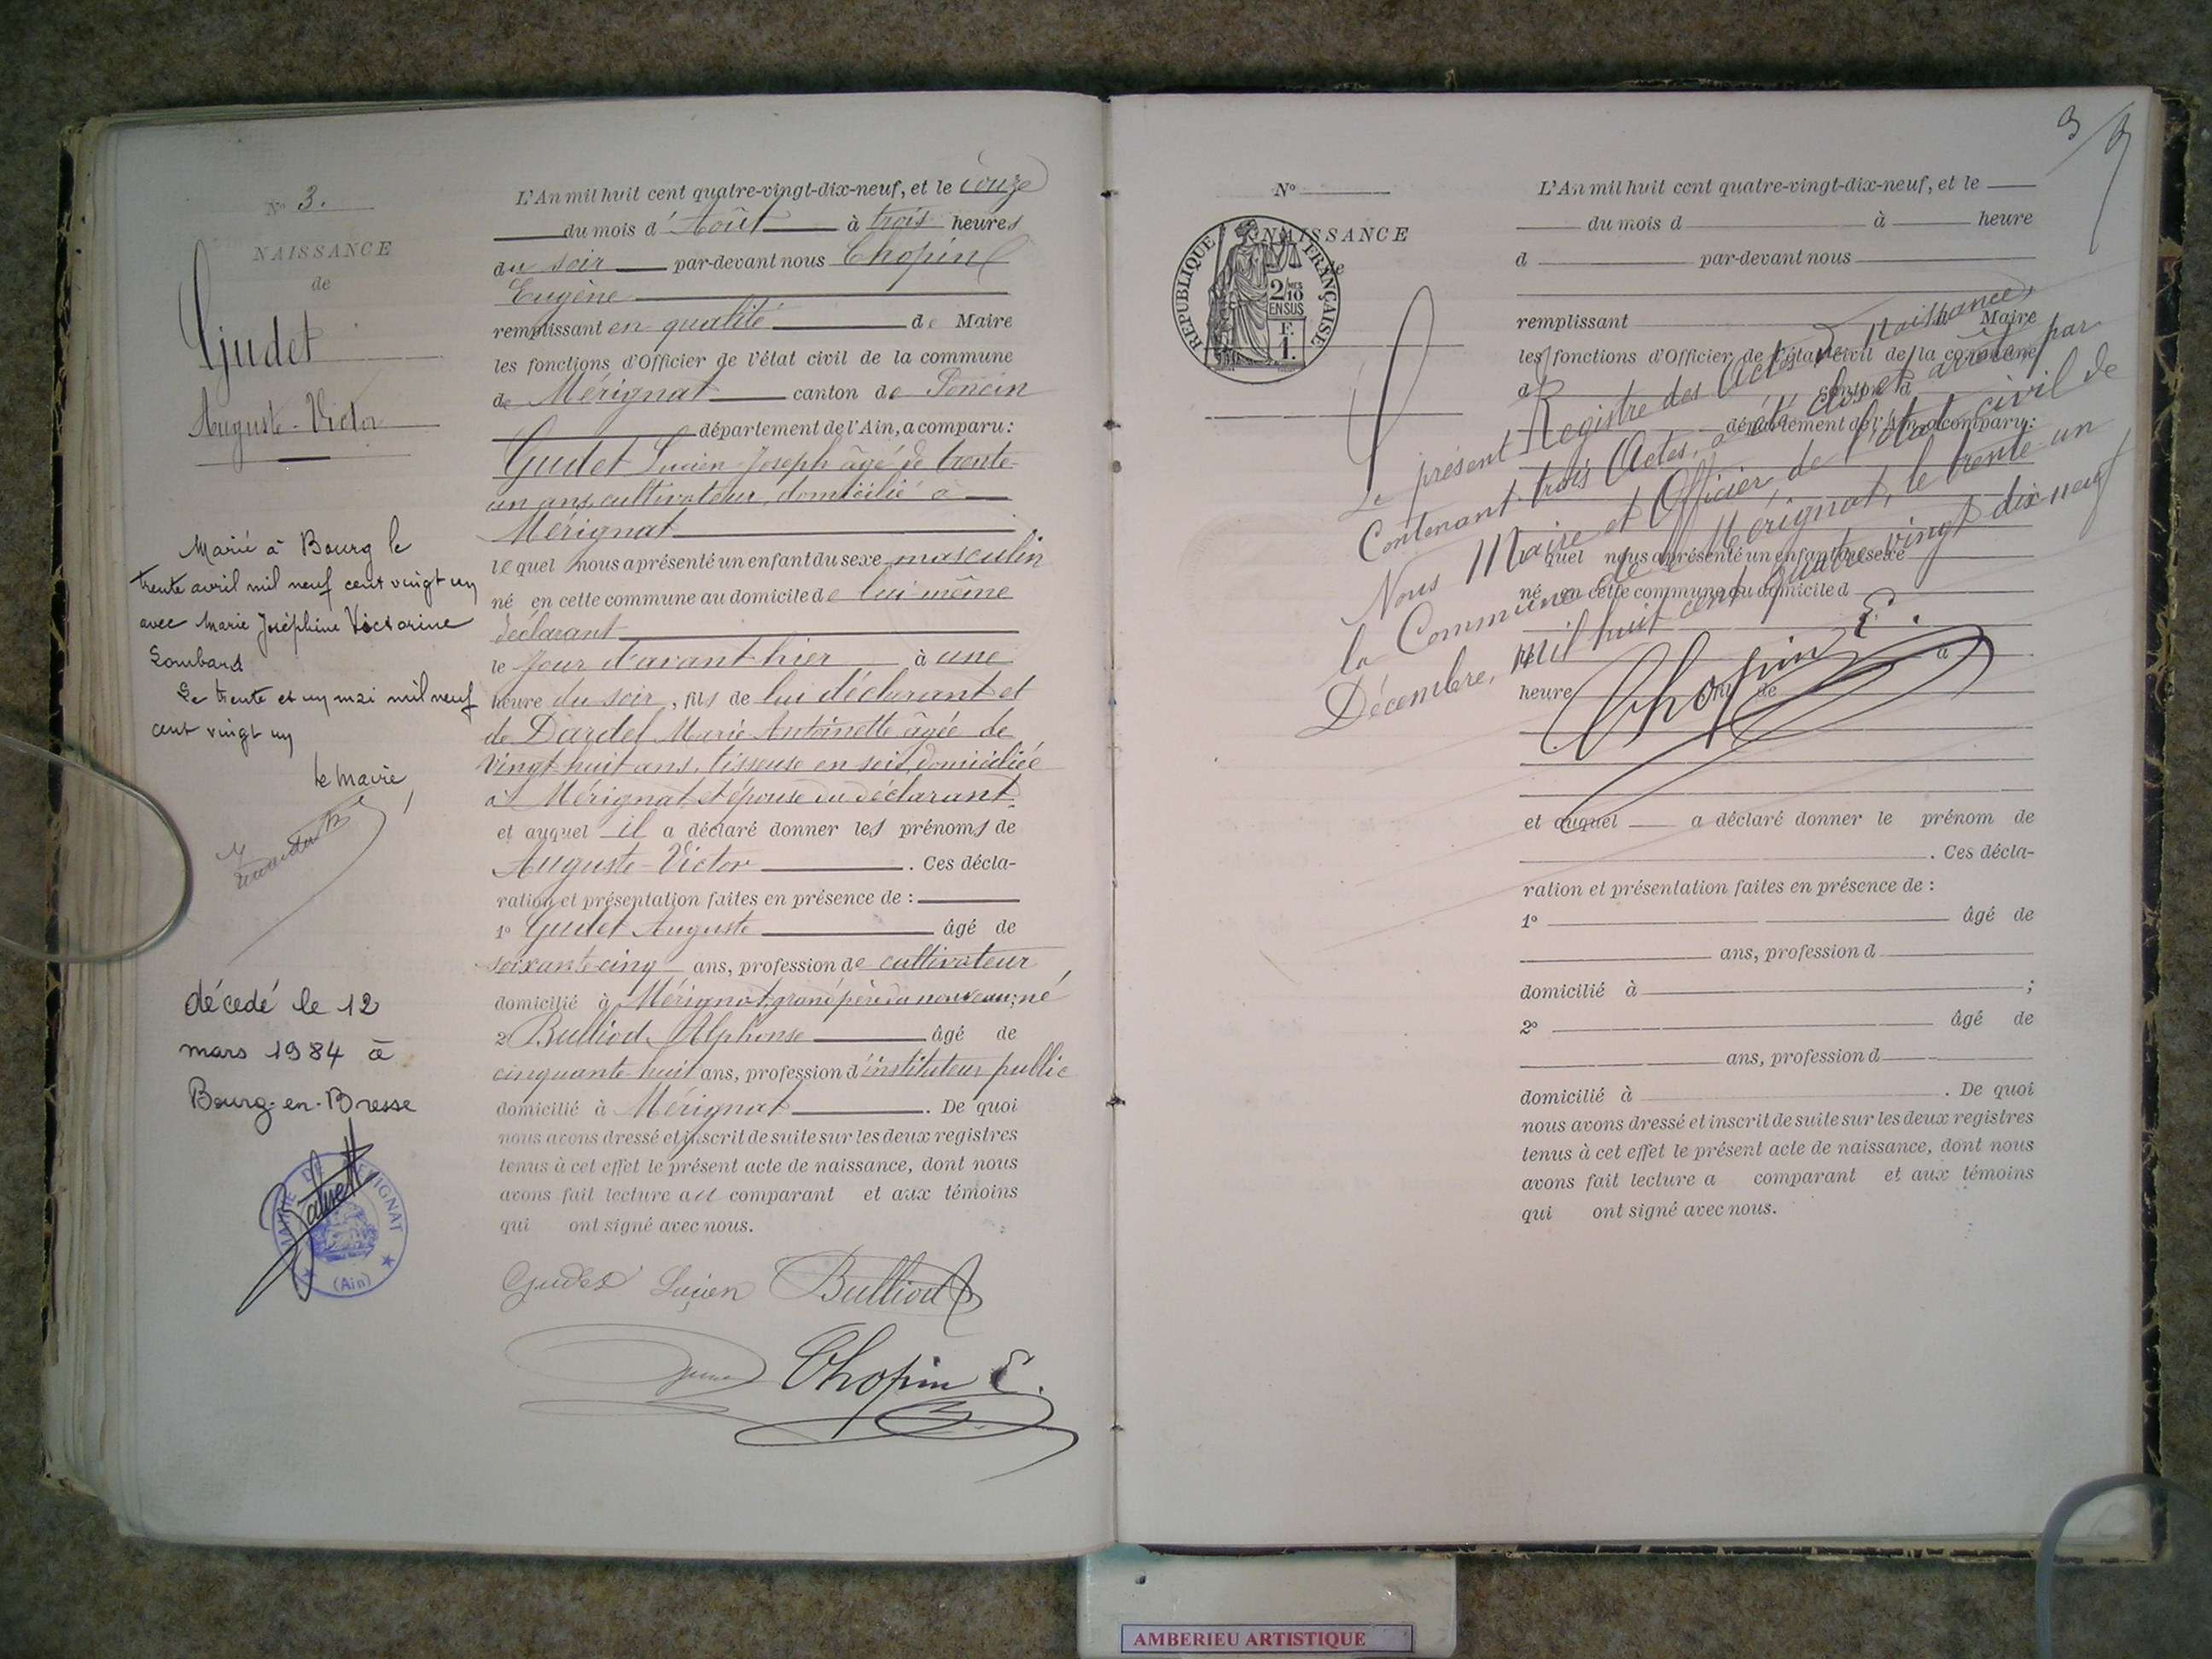 N° 3.
NAISSANCE
de
Gudet
Auguste-Victor
Marié à Bourg le
trente avril mil neuf cent vingt un
avec Marie Joséphine Victorine
Lombard
Le trente et un mai mil neuf
cent vingt un
le Maire,
décédé le 12
mars 1984 à
Bourg-en-Bresse
MAIRIE DE MÉRIGNAT
(Ain)
L'An mil huit cent quatre-vingt-dix-neuf, et le onze
du mois d'Août à trois heures
du soir par-devant nous Chopin
Eugène
remplissant en qualité de Maire
les fonctions d'Officier de l'état civil de la commune
de Mérignat canton de Poncin
département de l'Ain, a comparu:
Gudet Lucien-Joseph âgé de trente-
un ans, cultivateur, domicilié à
Mérignat
lequel nous a présenté un enfant du sexe masculin
né en cette commune au domicile de lui-même
déclarant
le jour d'avant-hier à une
heure du soir, fils de lui déclarant et
de Dardel Marie Antoinette âgée de
vingt-huit ans, tisseuse en soie, domiciliée
à Mérignat et épouse du déclarant
et auquel il a déclaré donner les prénoms de
Auguste-Victor. Ces décla-
ration et présentation faites en présence de :
1° Gudet Auguste âgé de
soixante-cinq ans, profession de cultivateur
domicilié à Mérignat, grand père du nouveau-né
2° Bulliod Alphonse âgé de
cinquante-huit ans, profession d'instituteur public
domicilié à Mérignat. De quoi
nous avons dressé et inscrit de suite sur les deux registres
tenus à cet effet le présent acte de naissance, dont nous
avons fait lecture au comparant et aux témoins
qui ont signé avec nous.
Gudet Lucien Bulliod
Chopin E.
3
N°
NAISSANCE
de
RÉPUBLIQUE FRANÇAISE
2/10
MES
EN SUS
F.
1.
L'An mil huit cent quatre-vingt-dix-neuf, et le
du mois d à heure
d par-devant nous
remplissant Maire
les fonctions d'Officier de l'état civil de la commune
d canton d
département de l'Ain, a comparu:
quel nous a présenté un enfant du sexe
né en cette commune au domicile d
le à
heure fil de
et auquel a déclaré donner le prénom de
. Ces décla-
ration et présentation faites en présence de :
1° âgé de
ans, profession d
domicilié à ;
2° âgé de
ans, profession d
domicilié à . De quoi
nous avons dressé et inscrit de suite sur les deux registres
tenus à cet effet le présent acte de naissance, dont nous
avons fait lecture a comparant et aux témoins
qui ont signé avec nous.
Le présent Registre des Actes de Naissance,
Contenant trois Actes, a été clos et arrêté par
Nous Maire et Officier de l'état civil de
la Commune de Mérignat, le trente-un
Décembre, mil huit cent quatre vingt dix-neuf
Chopin E.
AMBERIEU ARTISTIQUE